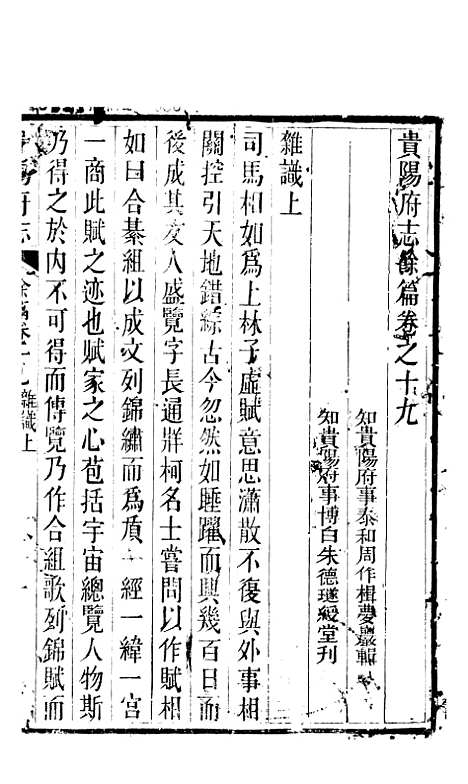 貴陽府志餘篇卷之十九
知貴陽府事泰和周作楫夢巖輯
知貴陽府事博白朱德璲綬堂刊
雜識上
司馬相如爲上林子虛賦意思瀟散不復與外事相
關控引天地錯綜古今忽然如睡躍而興幾百日而
後成其友人盛覽字長通牂柯名士嘗問以作賦相
如曰合綦組以成文列錦繡而爲質一經一緯一宮
一商此賦之迹也賦家之心苞括宇宙總覽人物斯
乃得之於內不可得而傳覽乃作合組歌列錦賦而
府志 餘篇卷十九 雜識上